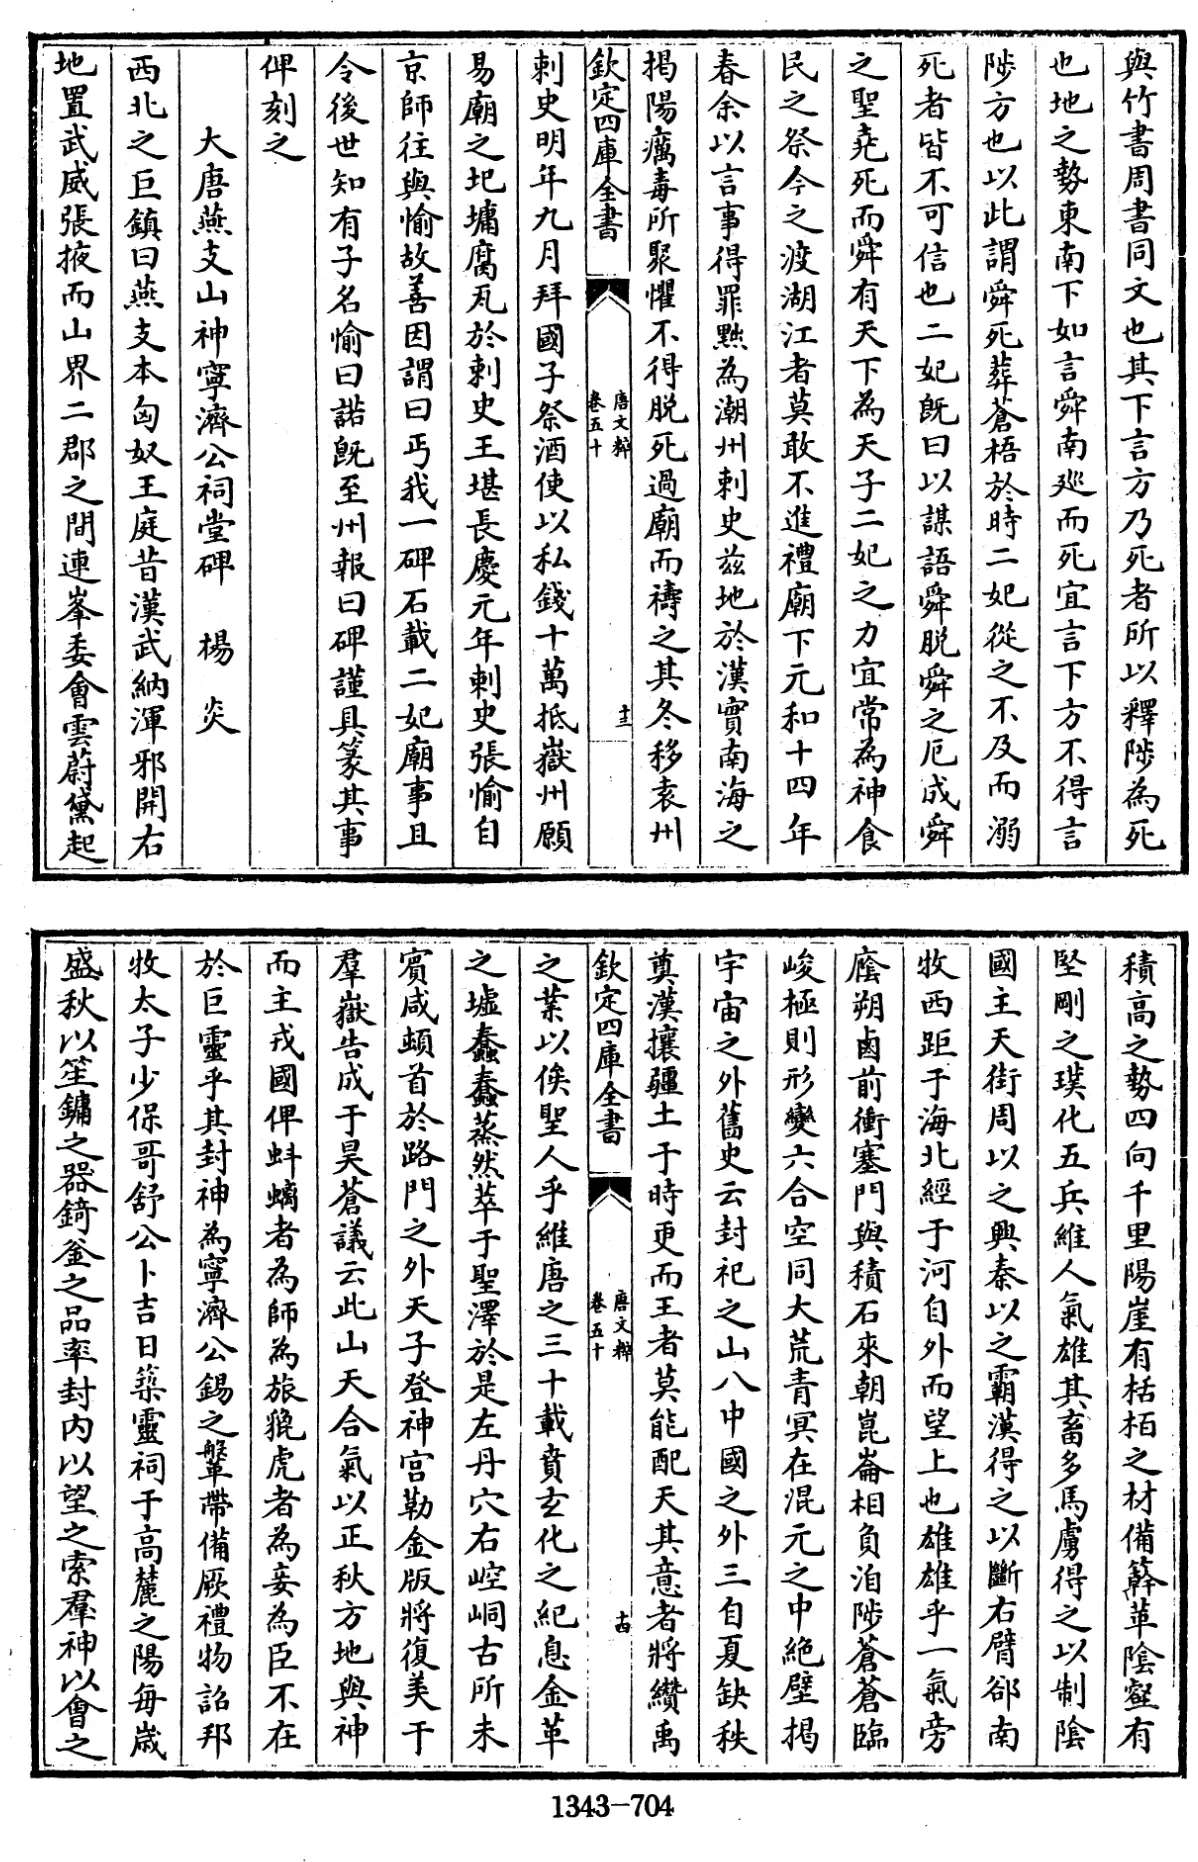 與竹書周書同文也其下言方乃死者所以釋陟為死
也地之勢東南下如言舜南廵而死宜言下方不得言
陟方也以此謂舜死葬蒼梧於時二妃從之不及而溺
死者皆不可信也二妃既曰以謀語舜脱舜之厄成舜
之聖堯死而舜有天下為天子二妃之力宜常為神食
民之祭今之渡湖江者莫敢不進禮廟下元和十四年
春余以言事得罪黜為潮州刺史兹地於漢實南海之
揭陽癘毒所聚懼不得脱死過廟而禱之其冬移袁州
欽定四庫全書
唐文粹
卷五十
十三
刺史明年九月拜國子祭酒使以私錢十萬抵嶽州願
易廟之圮墉腐瓦於刺史王堪長慶元年刺史張愉自
京師往與愉故善因謂曰丐我一碑石載二妃廟事且
令後世知有子名愉曰諾既至州報曰碑謹具篆其事
俾刻之
大唐燕支山神寧濟公祠堂碑 楊炎
西北之巨鎮曰燕支本匈奴王庭昔漢武納渾邪開右
地置武威張掖而山界二郡之間連峯委㑹雲蔚黛起
積高之勢四向千里陽崖有栝栢之材備簳革陰壑有
堅剛之璞化五兵維人氣雄其畜多馬虜得之以制陰
國主天街周以之興秦以之霸漢得之以斷右臂郤南
牧西距于海北經于河自外而望上也雄雄乎一氣旁
廕朔鹵前衝塞門與積石來朝崑崙相負洎陟蒼蒼臨
峻極則形變六合空同大荒青冥在混元之中絶壁揭
宇宙之外舊史云封祀之山八中國之外三自夏缺秩
奠漢攘疆土于時更而王者莫能配天其意者將纘禹
欽定四庫全書
唐文粹
卷五十
十四
之業以俟聖人乎維唐之三十載賁玄化之紀息金革
之墟蠢蠢蒸然萃于聖澤於是左丹穴右崆峒古所未
賔咸頓首於路門之外天子登神宫勒金版將復美于
羣嶽告成于昊蒼議云此山天合氣以正秋方地與神
而主戎國俾蚪螭者為師為旅㹸虎者為妾為臣不在
於巨靈乎其封神為寧濟公錫之鞶帶備厥禮物詔邦
牧太子少保哥舒公卜吉日築靈祠于高麓之陽每嵗
盛秋以笙鏞之器錡釜之品率封内以望之索羣神以㑹之
1343-704